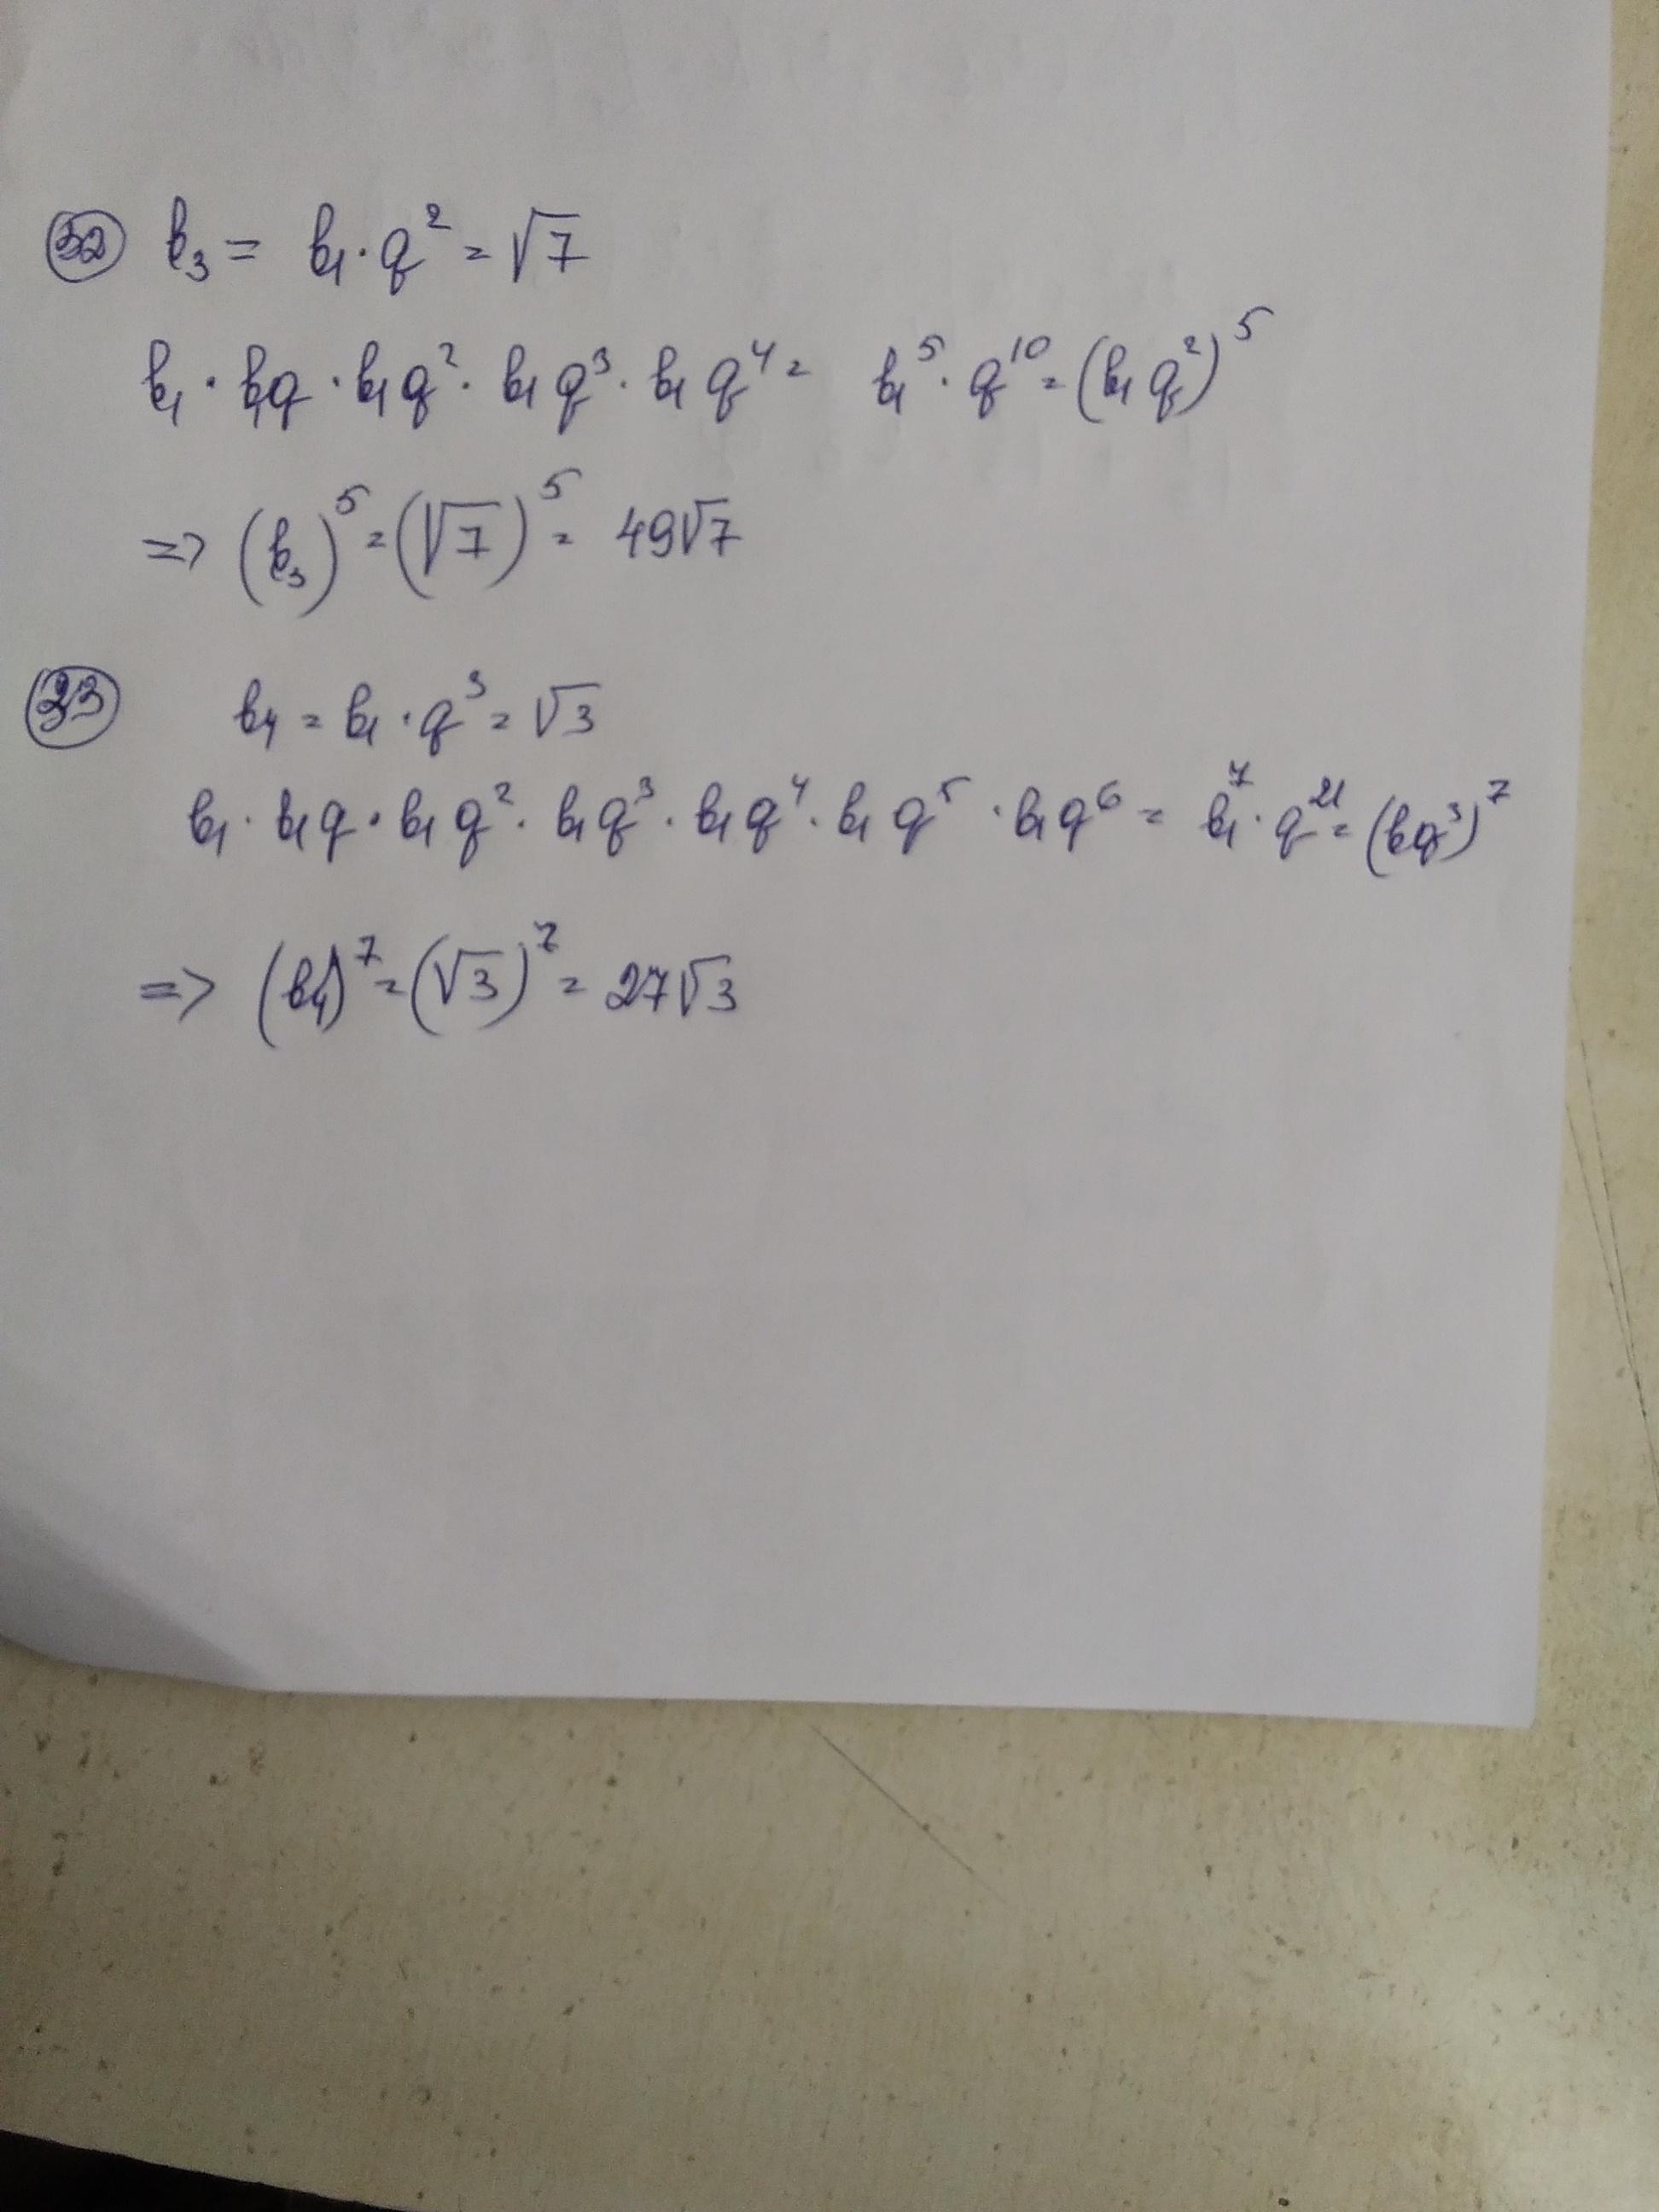 32 b₃ = b₁ · q² = √7
b₁ · b₁q · b₁q² · b₁q³ · b₁q⁴ = b₁⁵ · q¹⁰ = (b₁q²)⁵
=> (b₃)⁵ = (√7)⁵ = 49√7
33 b₄ = b₁ · q³ = √3
b₁ · b₁q · b₁q² · b₁q³ · b₁q⁴ · b₁q⁵ · b₁q⁶ = b₁⁷ · q²¹ = (b₁q³)⁷
=> (b₄)⁷ = (√3)⁷ = 27√3